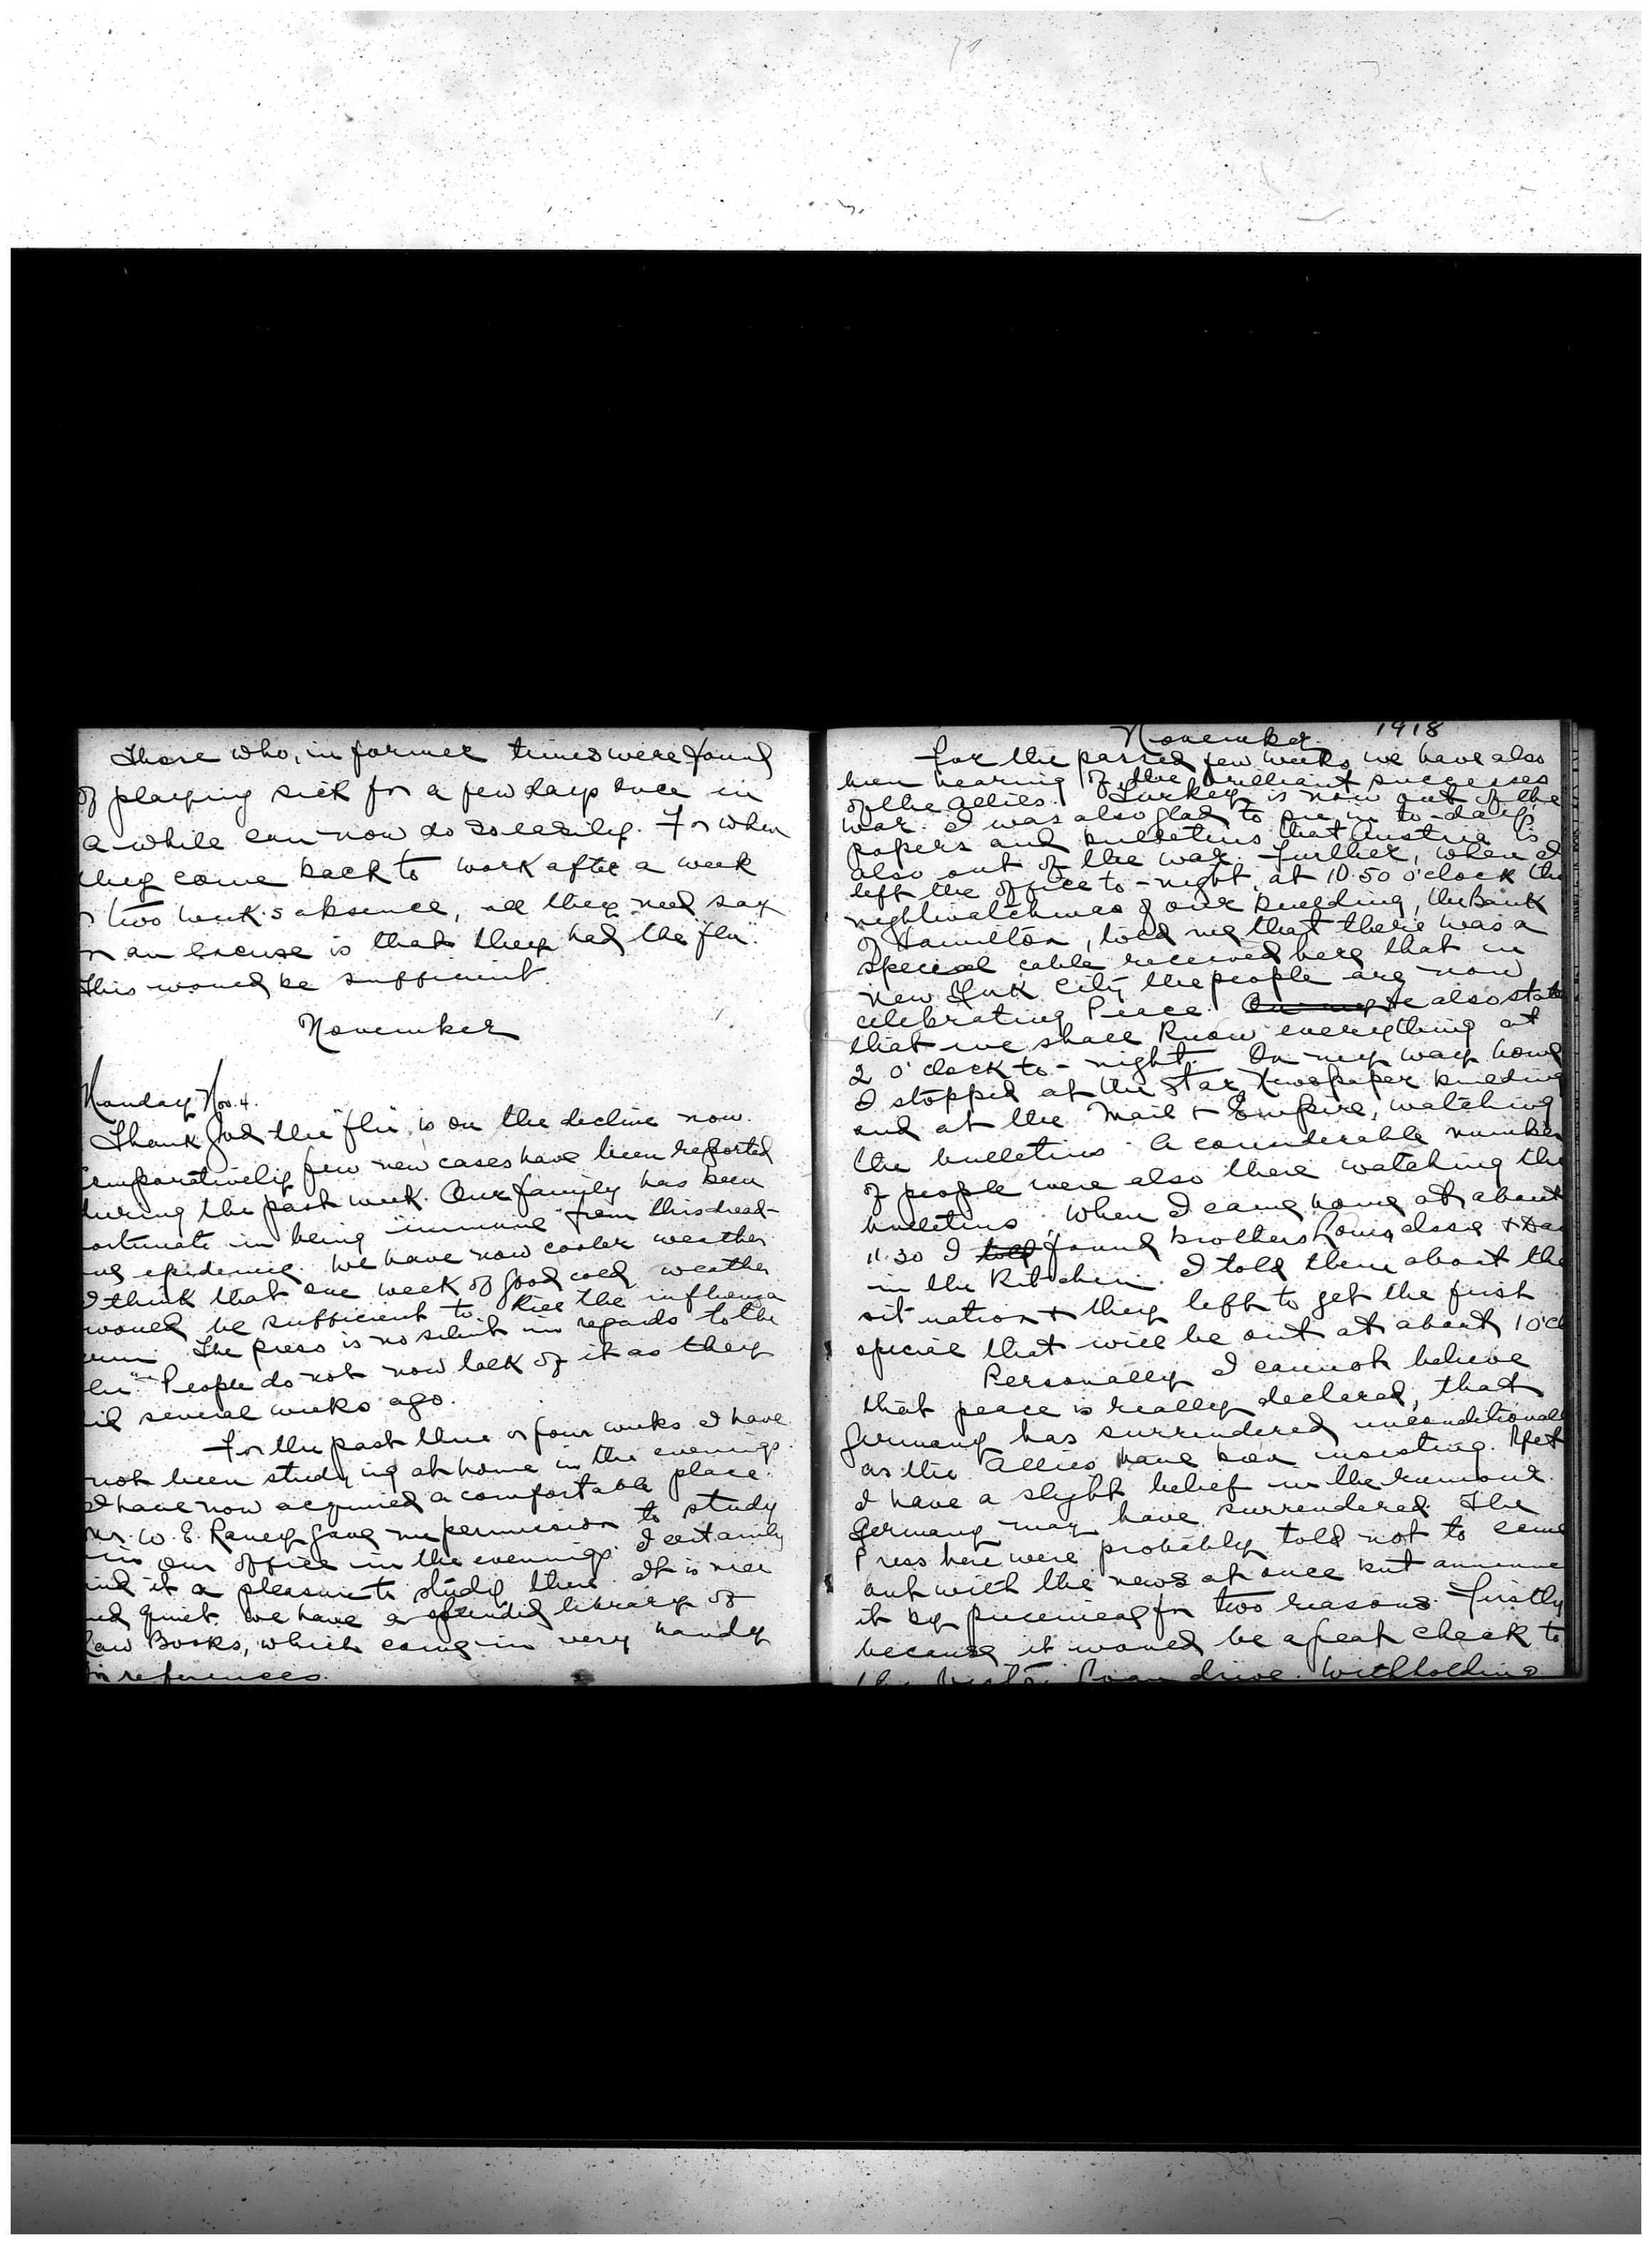 Those who, in former times were found
of playing sick for a few days once in
a while can now do so easily. For when
they come back to work after a week
r two week's absence, all they need say
n an excuse is that they had the "flu".
This would be sufficient.
November
Monday, Nov. 4.
Thank God the "flu" is on the decline now.
Comparatively few new cases have been reported
during the past week. Our family has been
ortunate in being "immune" from this dread-
epidemic. We have now cooler weather.
I think that one week of good cold weather
would be sufficient to kill the influenza
The press is no silent in regards to the
People do not now talk of it as they
id several weeks ago.
For the past three or four weeks I have
not been studying at home in the evenings.
I have now acquired a comfortable place.
Mr. W. E. Raney gave me permission to study
in our office in the evenings. I certainly
ind it a pleasure to study there. It is nice
nd quiet. We have a splendid library of
Law Books, which come in very handy
in references.
November 1918
For the passed few weeks we have also
been hearing of the brilliant successes
of the Allies. Turkey is now out of the
war. I was also glad to see in to-day's
papers and bulletins that Austria is
also out of the war. Further, when I
left the office to-night at 10.50 o'clock the
nightwatchman of our building, the Bank
of Hamilton, told me that there was a
special cable received here that in
New York City the people are now
celebrating Peace. On my He also state
that we shall know everything at
2 o'clock to-night. On my way home
I stopped at the Star Newspaper building
and at the Mail & Empire, watching
the bulletins. A considerable number
of people were also there watching the
bulletins. When I came home at about
11.30 I told found brothers Louis &
in the Kitchen. I told them about the
situation & they left to get the first
special that will be out at about 1 o'cl
Personally I cannot believe
that peace is really declared, that
Germany has surrendered unconditionall
as the Allies have been insisting. Yet
I have a slight belief in the rumour.
Germany may have surrendered. The
Press here were probably told not to come
out with the news at once but announce
it by piecemeal for two reasons. Firstly
because it would be a great check to
the Victory Loan drive. Withholding